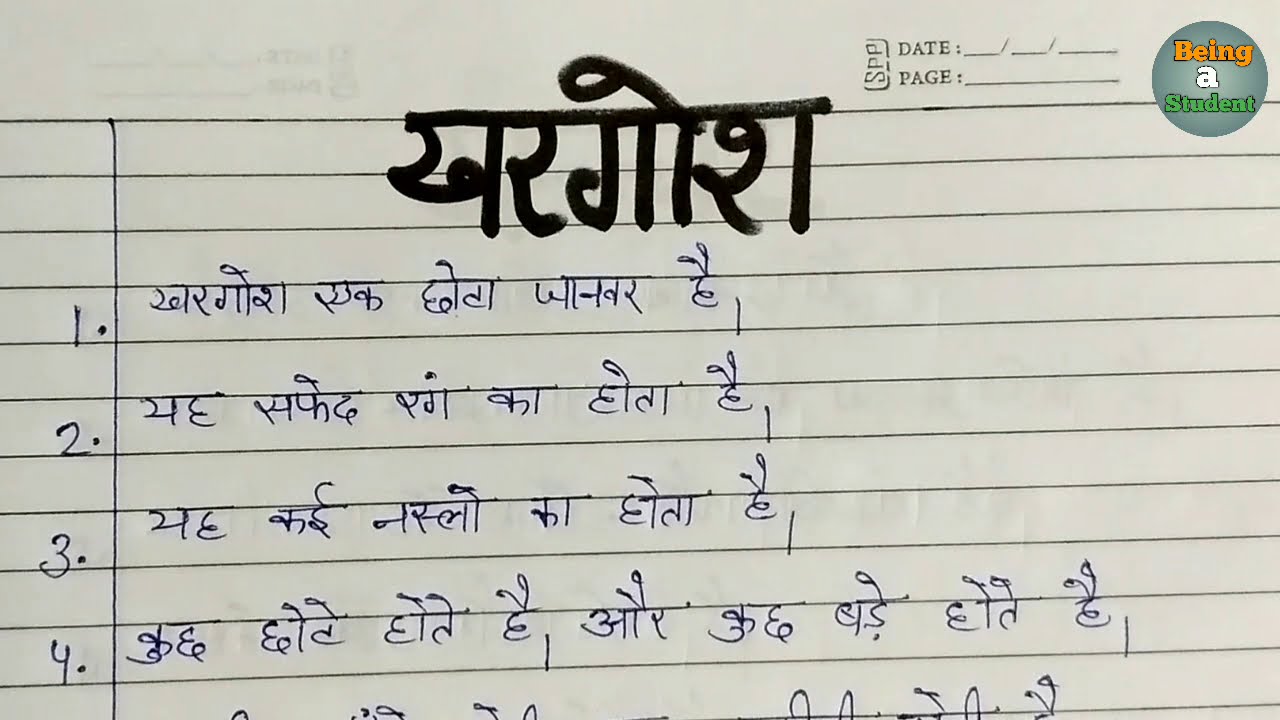 DATE:__/__/____
PAGE:________
Being
a
Student
खरगोश
1. खरगोश एक छोटा जानवर है।
2. यह सफेद रंग का होता है।
3. यह कई नस्लो का होता है।
4. कुछ छोटे होते है। और कुछ बड़े होते है।